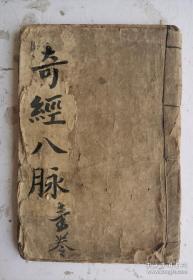 奇經八脉
全卷